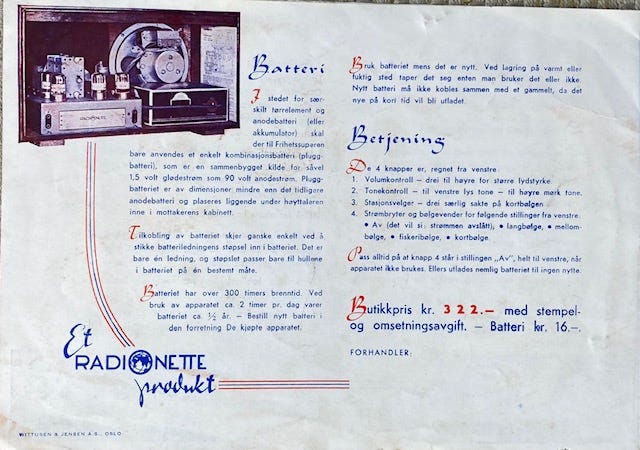 RADIONETTE
Batteri
I stedet for sær-
skilt tørrelement og
anodebatteri (eller
akkumulator) skal
der til Frihetssuparen
bare anvendes et enkelt kombinasjonsbatteri (plugg-
batteri), som er en sammenbygget kilde for såvel
1,5 volt glødestrøm som 90 volt anodestrøm. Plugg-
batteriet er av dimensjoner mindre enn det tidligere
anodebatteri og plaseres liggende under høyttaleren
inne i mottakerens kabinett.
Tilkobling av batteriet skjer ganske enkelt ved å
stikke batteriledningens støpsel inn i batteriet. Det er
bare én ledning, og støpslet passer bare til hullene
i batteriet på én bestemt måte.
Batteriet har over 300 timers brenntid. Ved
bruk av apparatet ca. 2 timer pr. dag varer
batteriet ca. ½ år. – Bestill nytt batteri i
den forretning De kjøpte apparatet.
Et
RADIONETTE
produkt
WITTUSEN & JENSEN A.S., OSLO
Bruk batteriet mens det er nytt. Ved lagring på varmt eller
fuktig sted taper det seg enten man bruker det eller ikke.
Nytt batteri må ikke kobles sammen med et gammelt, da det
nye på kort tid vil bli utladet.
Betjening
De 4 knapper er, regnet fra venstre:
1. Volumkontroll – drei til høyre for større lydstyrke.
2. Tonekontroll – til venstre lys tone – til høyre mørk tone.
3. Stasjonsvelger – drei særlig sakte på kortbølgen.
4. Strømbryter og bølgevender for følgende stillinger fra venstre:
• Av (det vil si: strømmen avslått), • langbølge, • mellom-
bølge, • fiskeribølge, • kortbølge.
Pass alltid på at knapp 4 står i stillingen „Av", helt til venstre, når
apparatet ikke brukes. Ellers utlades nemlig batteriet til ingen nytte.
Butikkpris kr. 322.– med stempel-
og omsetningsavgift. – Batteri kr. 16.–.
FORHANDLER: